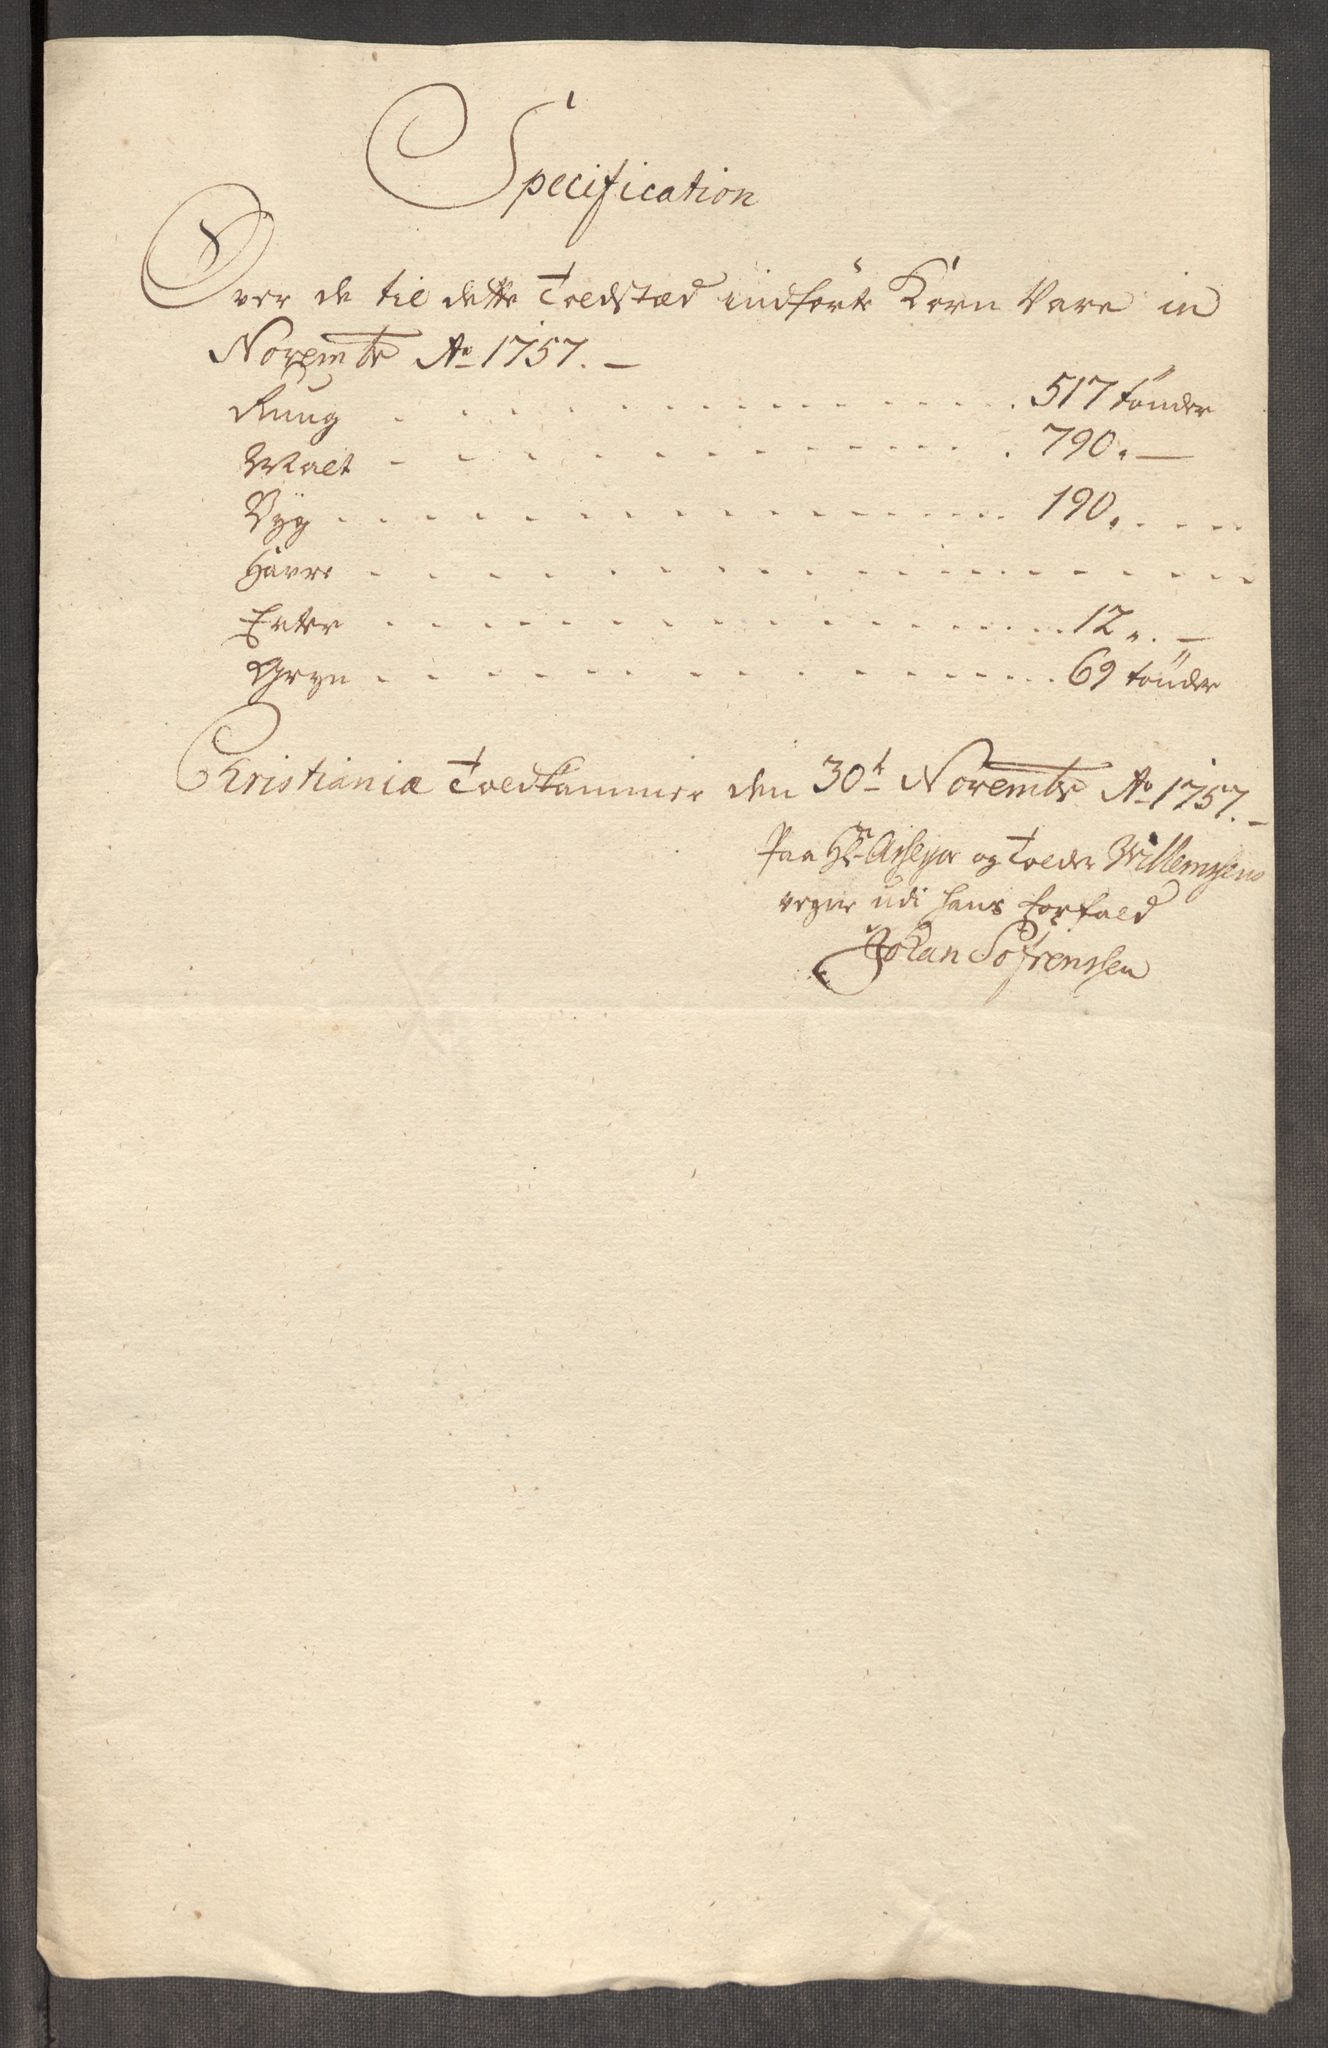 Specification
Over de til dette Toldstæd indförte Korn Vare in
Novembr Ao 1757.
Rung . . . . . . . . . . . . . . . . 517 tönder
Malt - - - - - - - - - - - - - - - 790. —
Byg . . . . . . . . . . . . . . . . 190. - - - -
Havre - - - - - - - - - - - - - - - - - - -
Erter - - - - - - - - - - - - - - - 12 „. —
Gryn - - - - - - - - - - - - - - - 69 tönder
Christiania Toldkammer den 30t Novembr Ao 1757. –
Paa Hr Assessor og Tolder Willemsens
vegne udi hans forfald
Johan Söfrenssen